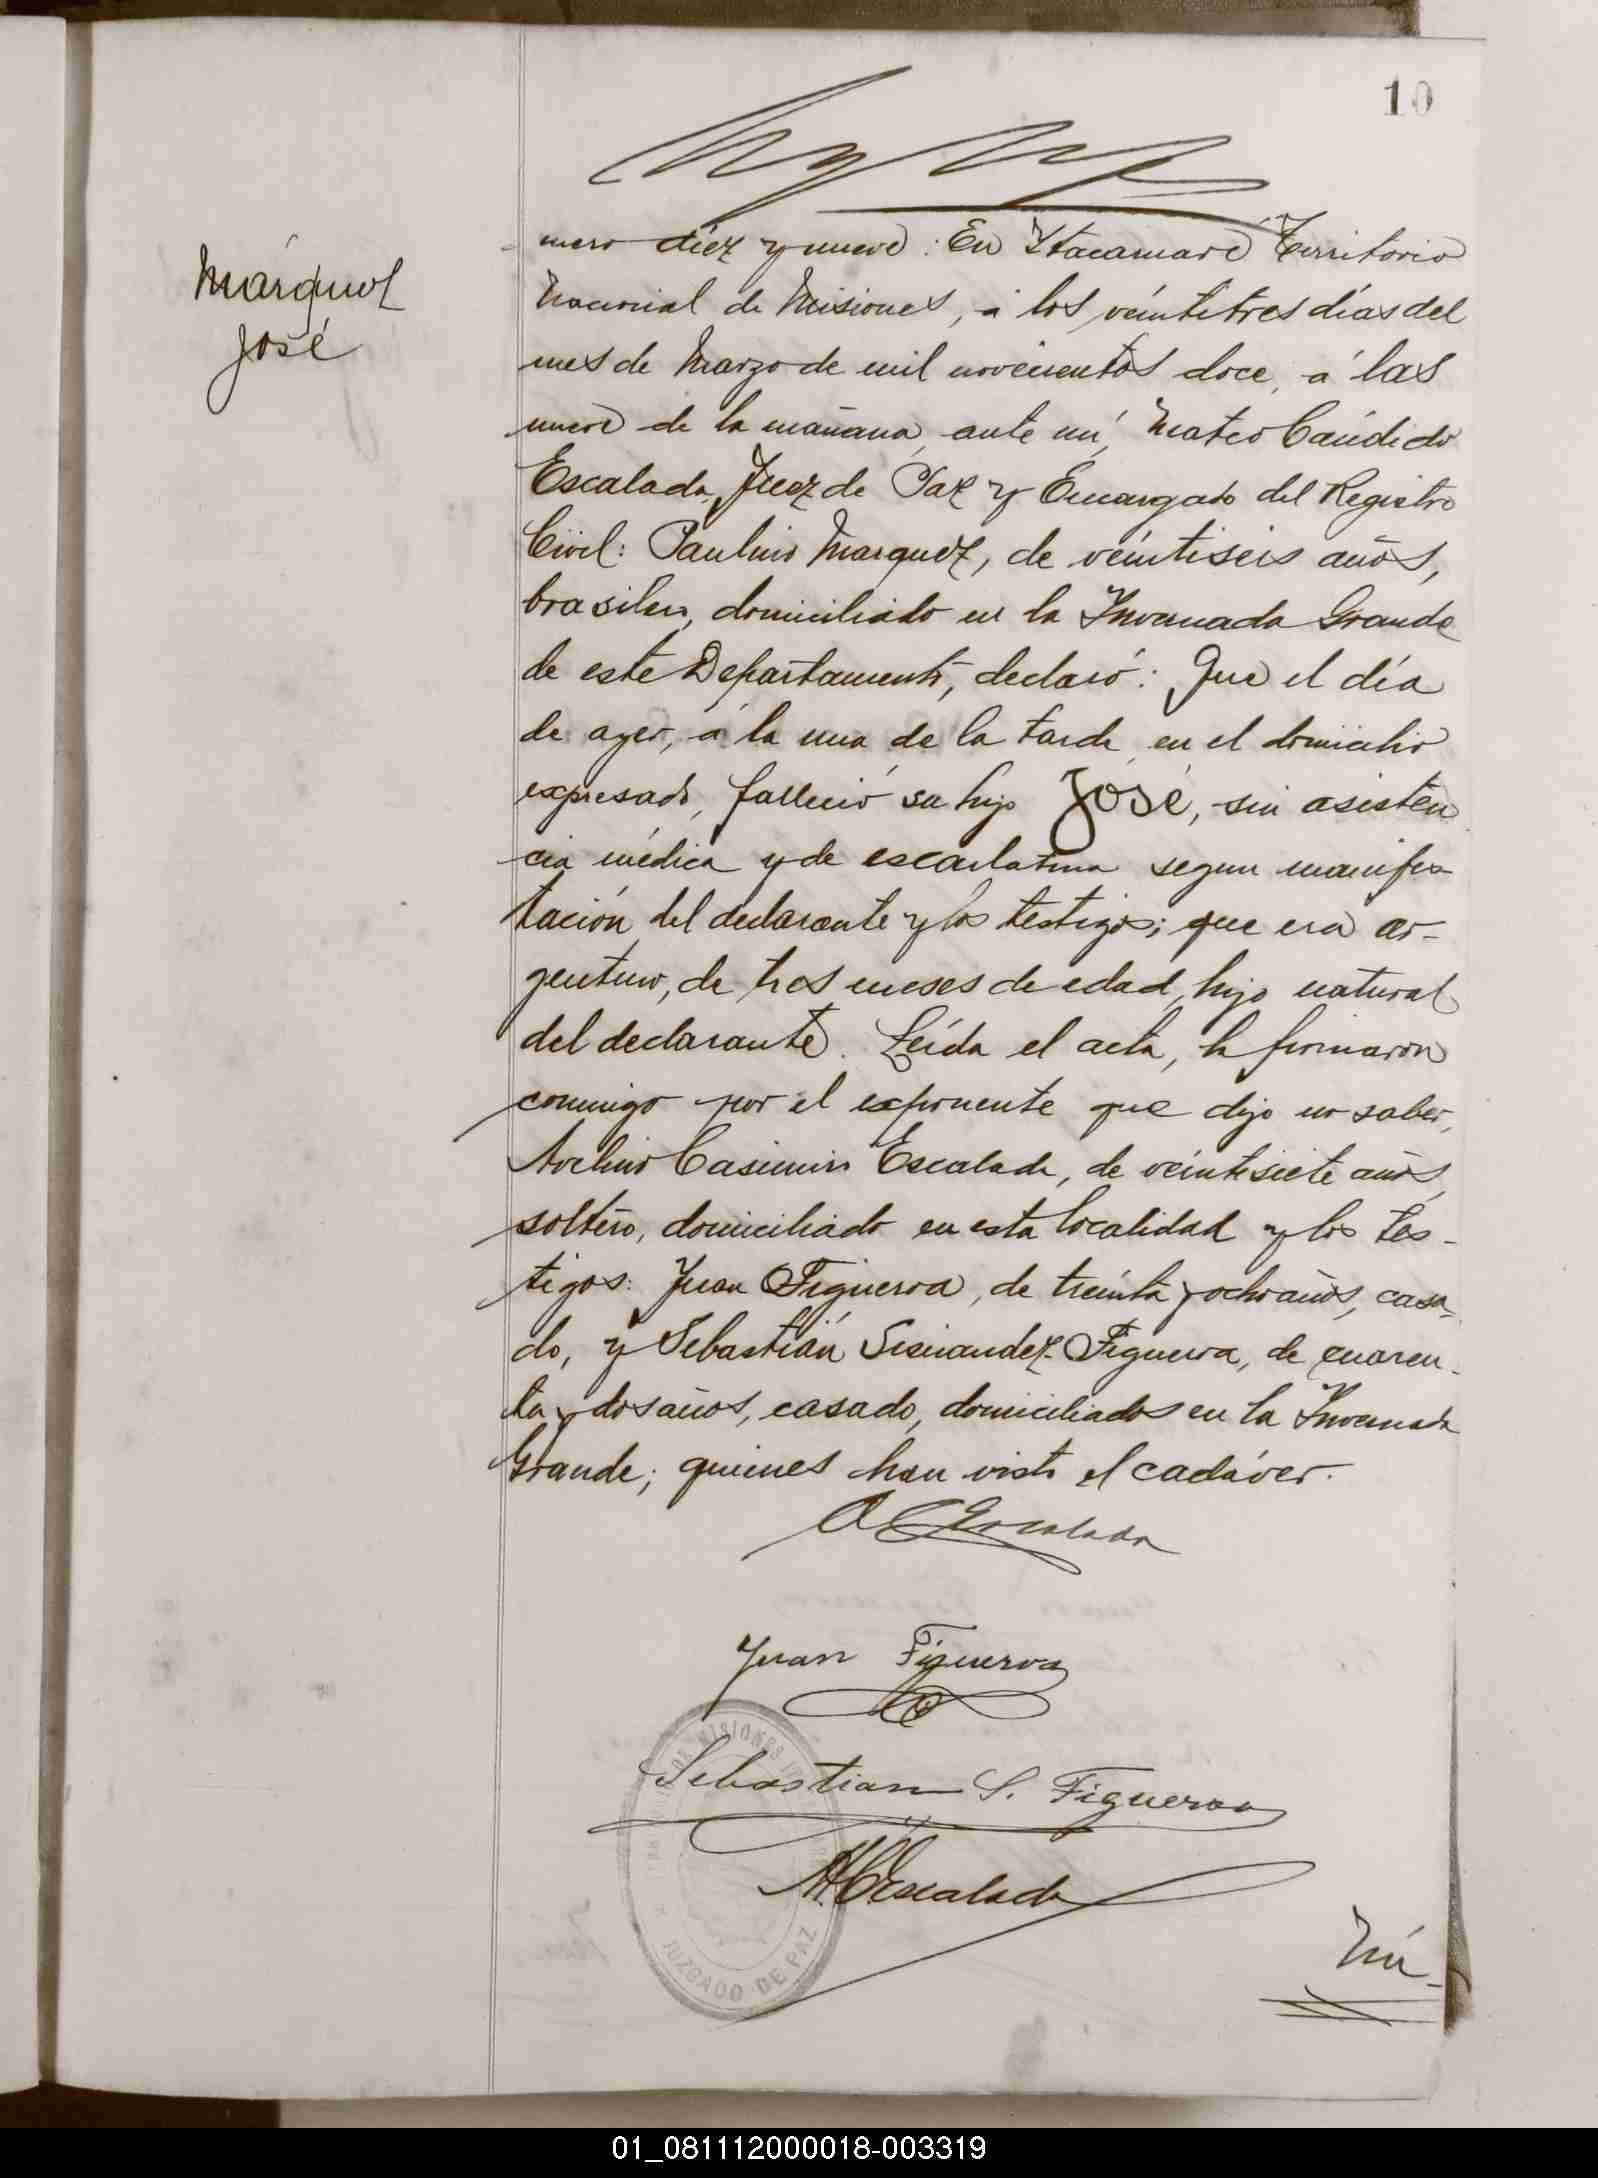 10
Márquez
José
mero diez y nueve: En Itacaruaré Territorio
Nacional de Misiones, á los veintitres días del
mes de Marzo de mil novecientos doce, á las
nueve de la mañana, ante mí, Mateo Cándido
Escalada, Juez de Paz y Encargado del Registro
Civil: Paulino Marquez, de veintiseis años,
brasilero, domiciliado en la Invernada Grande
de este Departamento, declaró: Que el día
de ayer, á la una de la tarde, en el domicilio
expresado, falleció su hijo José, sin asisten
cia médica y de escarlatina segun manifes
tación del declarante y los testigos; que era ar-
gentino, de tres meses de edad, hijo natural
del declarante. Leída el acta, la firmaron
conmigo por el exponente que dijo no saber,
Avelino Casimiro Escalada, de veintisiete años,
soltero, domiciliado en esta localidad y los tes-
tigos: Juan Figueroa, de treinta y ocho años, casa-
do, y Sebastián Sisnandez Figueroa, de cuaren-
ta y dos años, casado, domiciliados en la Invernada
Grande; quienes han visto el cadáver.
A C Escalada
Juan Figueroa
Sebastian S. Figueroa
M. C. Escalada
MISIONES
JUZGADO DE PAZ
Nú-
01_081112000018-003319